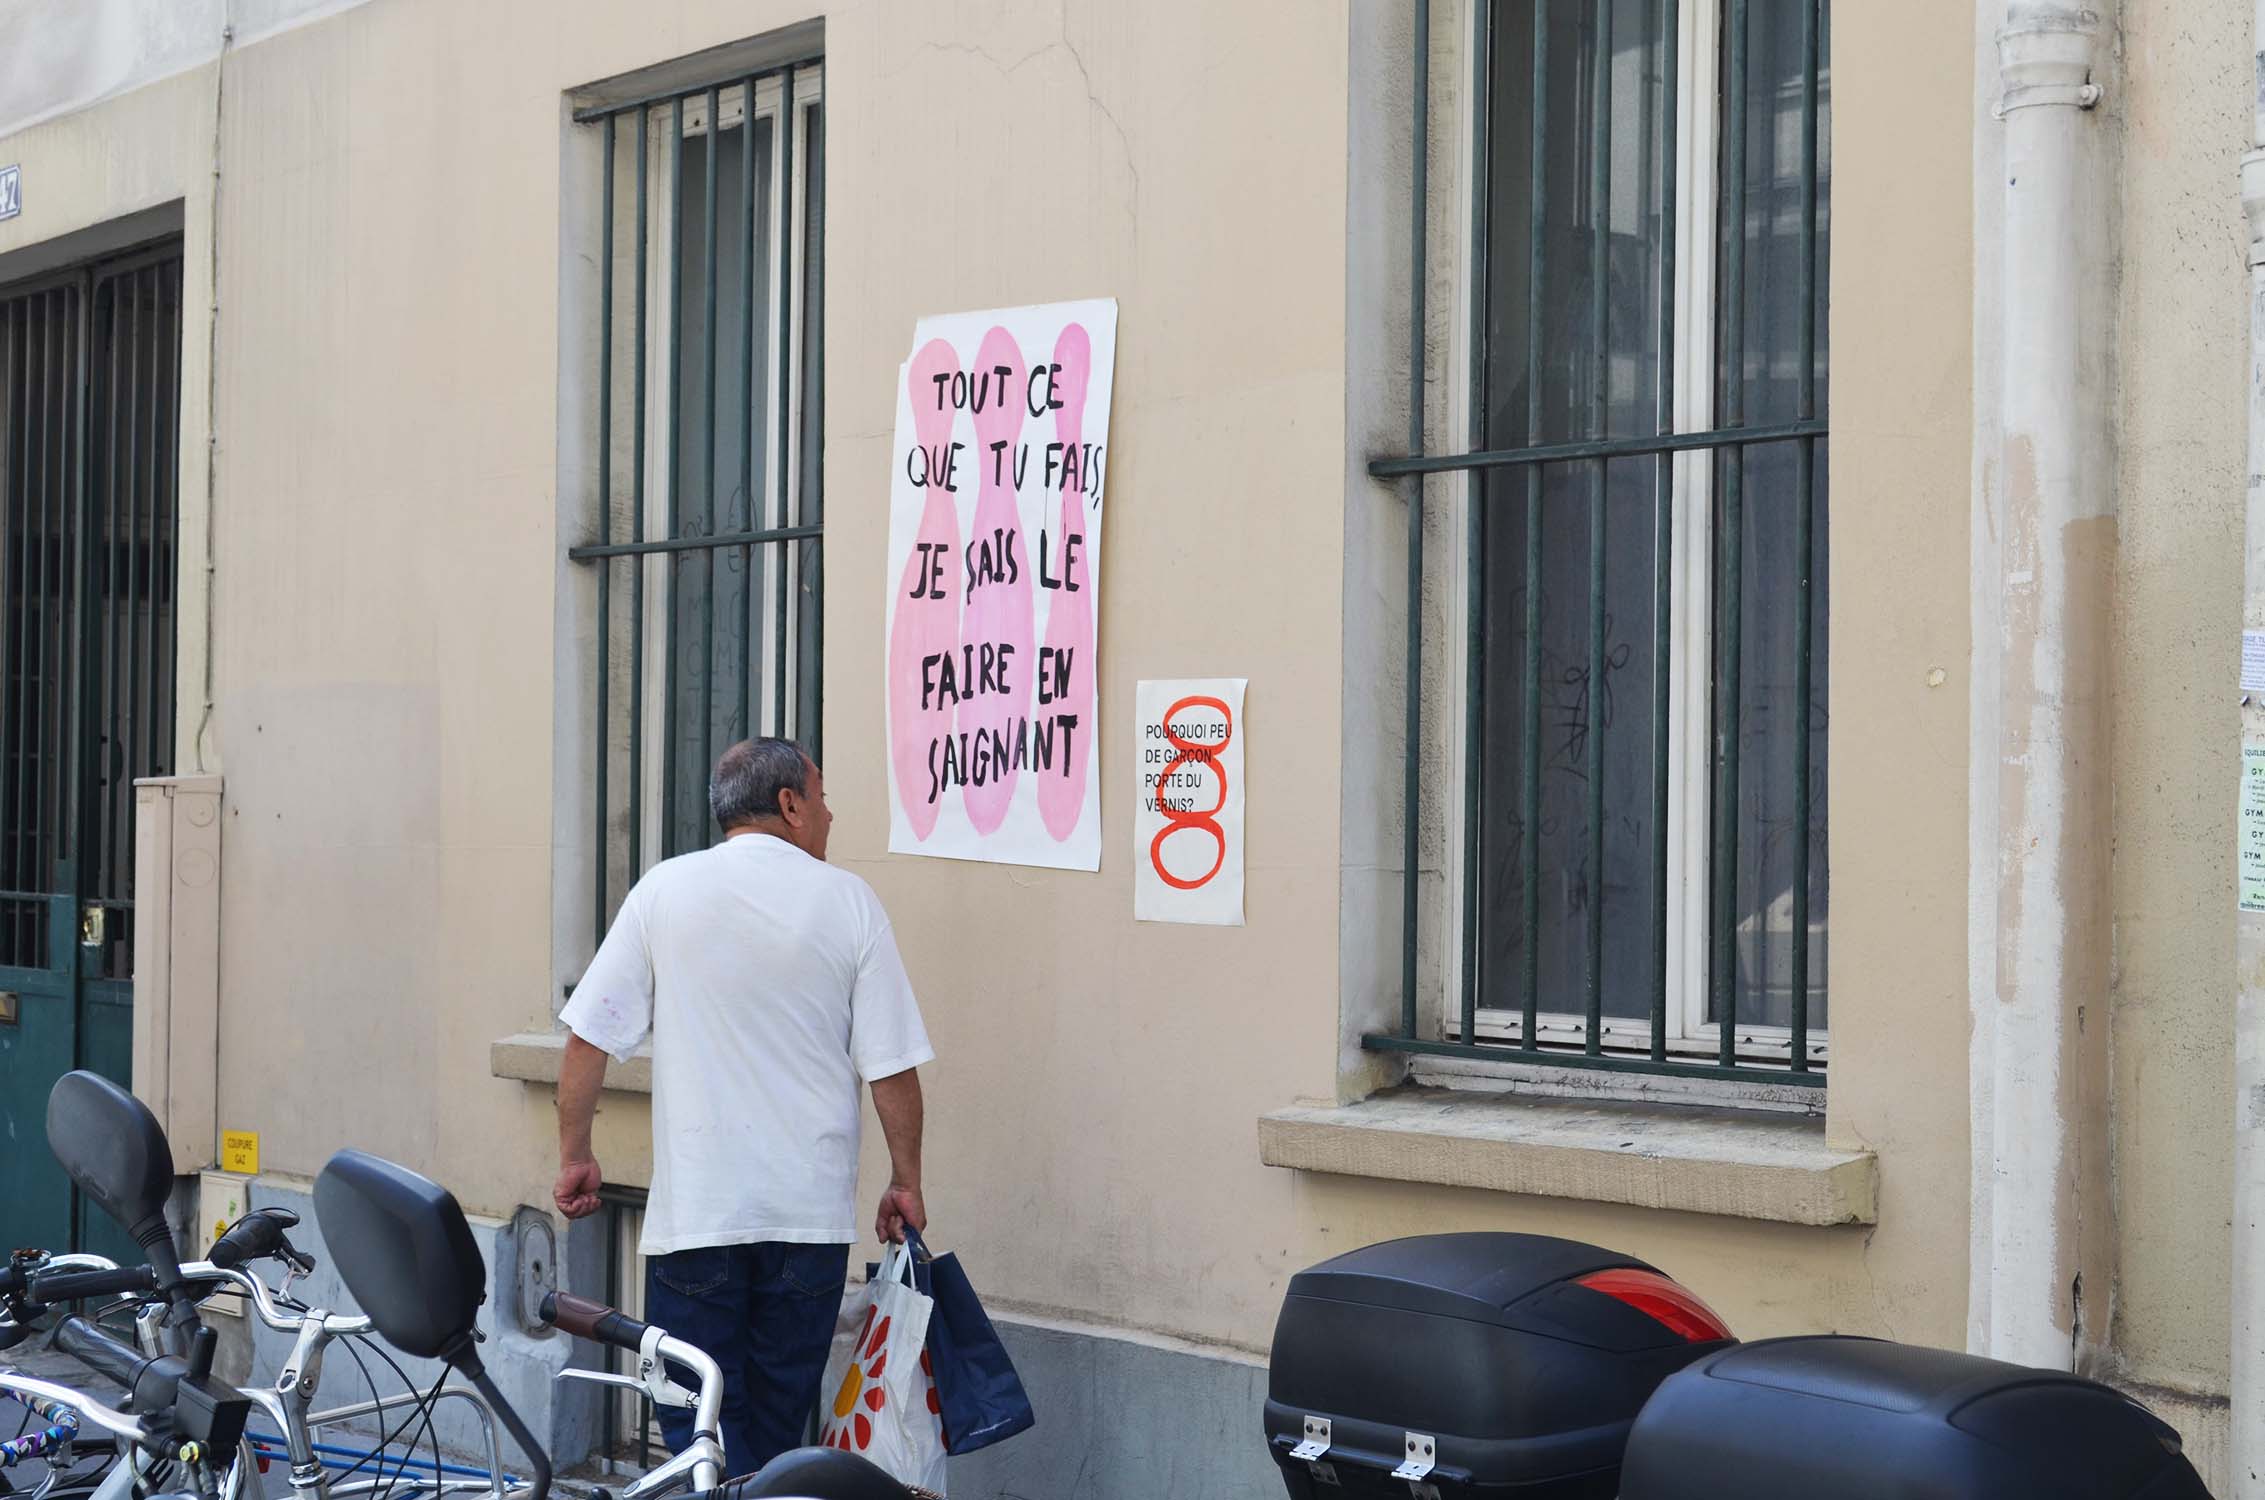 47
TOUT CE
QUE TU FAIS,
JE SAIS LE
FAIRE EN
SAIGNANT
POURQUOI PEU
DE GARÇON
PORTE DU
VERNIS?
COUPURE
GAZ
GYM
GYM